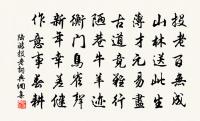 投老百無成
山林送此生
薄才元易盡
古道竟難行
陋巷牛羊迹
衡門鳥雀情
新年幸差健
作意事春耕
陸游投老詞典網集